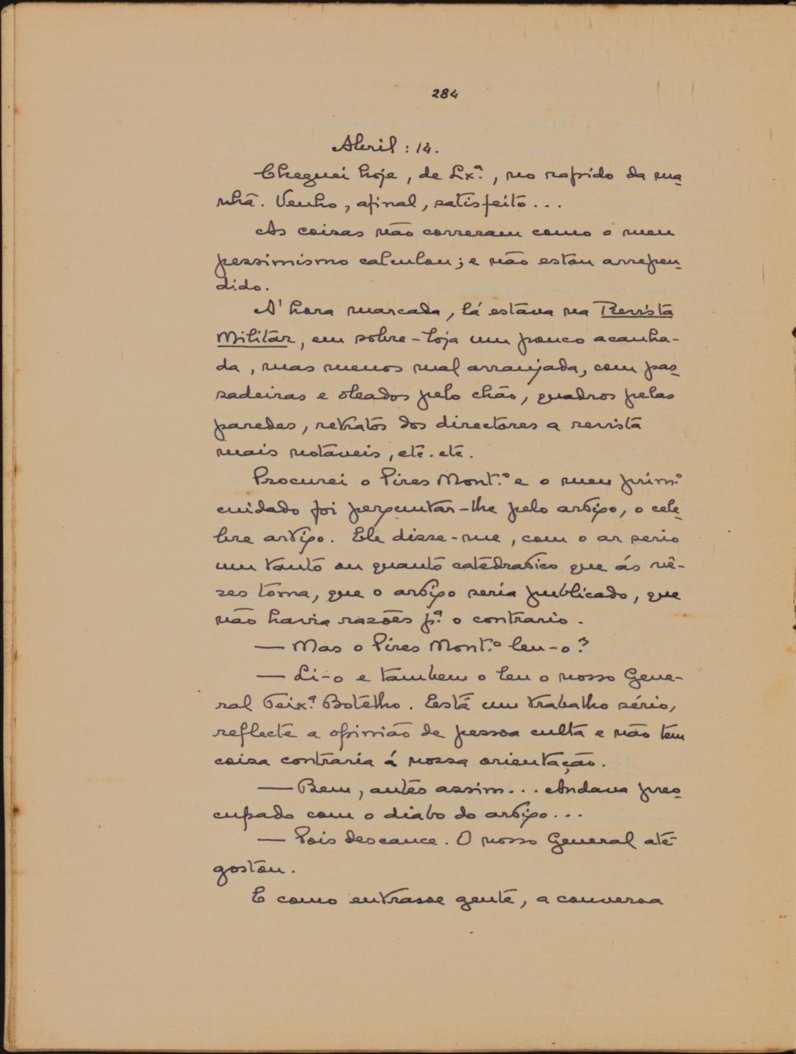 284
Abril: 14.
Cheguei hoje, de Lx.ª, no rapido da ma-
nhã. Venho, afinal, satisfeito...
As coisas não correram como o meu
pessimismo calculou; e não estou arrepen-
dido.
A' hora marcada, lá estava na Revista
Militar, em sobre-loja um pouco acanha-
da, mas menos mal arranjada, com pas-
sadeiras e oleados pelo chão, quadros pelas
paredes, retratos dos directores a revista
mais notaveis, etc. etc.
Procurei o Pires Mont.º e o meu prim.º
cuidado foi perguntar-lhe pelo artigo, o cele-
bre artigo. Ele disse-me, com o ar serio
um tanto ou quanto catedratico que ás vê-
zes toma, que o artigo seria publicado, que
não havia razões p.ª o contrario.
— Mas o Pires Mont.º leu-o?
— Li-o e tambem o leu o nosso Gene-
ral Teix.ª Botelho. Está um trabalho sério,
reflecte a opinião de pessoa culta e não tem
coisa contraria á nossa orientação.
— Bem, antes assim... Andava preo-
cupado com o diabo do artigo...
— Pois descance. O nosso General até
gostou.
E como entrasse gente, a conversa